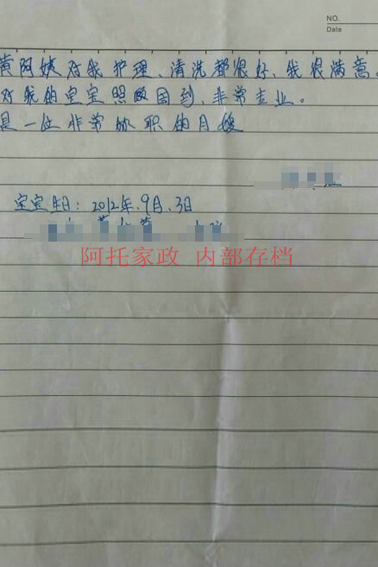 NO.
Date
黄阿姨对我护理、清洗都很好,我很满意。
对我的宝宝照顾周到,非常专业。
是一位非常称职的月嫂
宝宝生日:2012年.9月.3日
阿托家政 内部存档